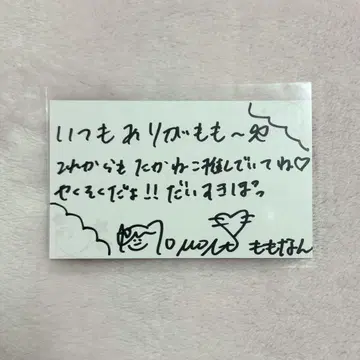 いつもありがもも〜
これからもたかねこ推しでいてね♡
やくそくだよ!! だいすきぱっ
momoko ももなん